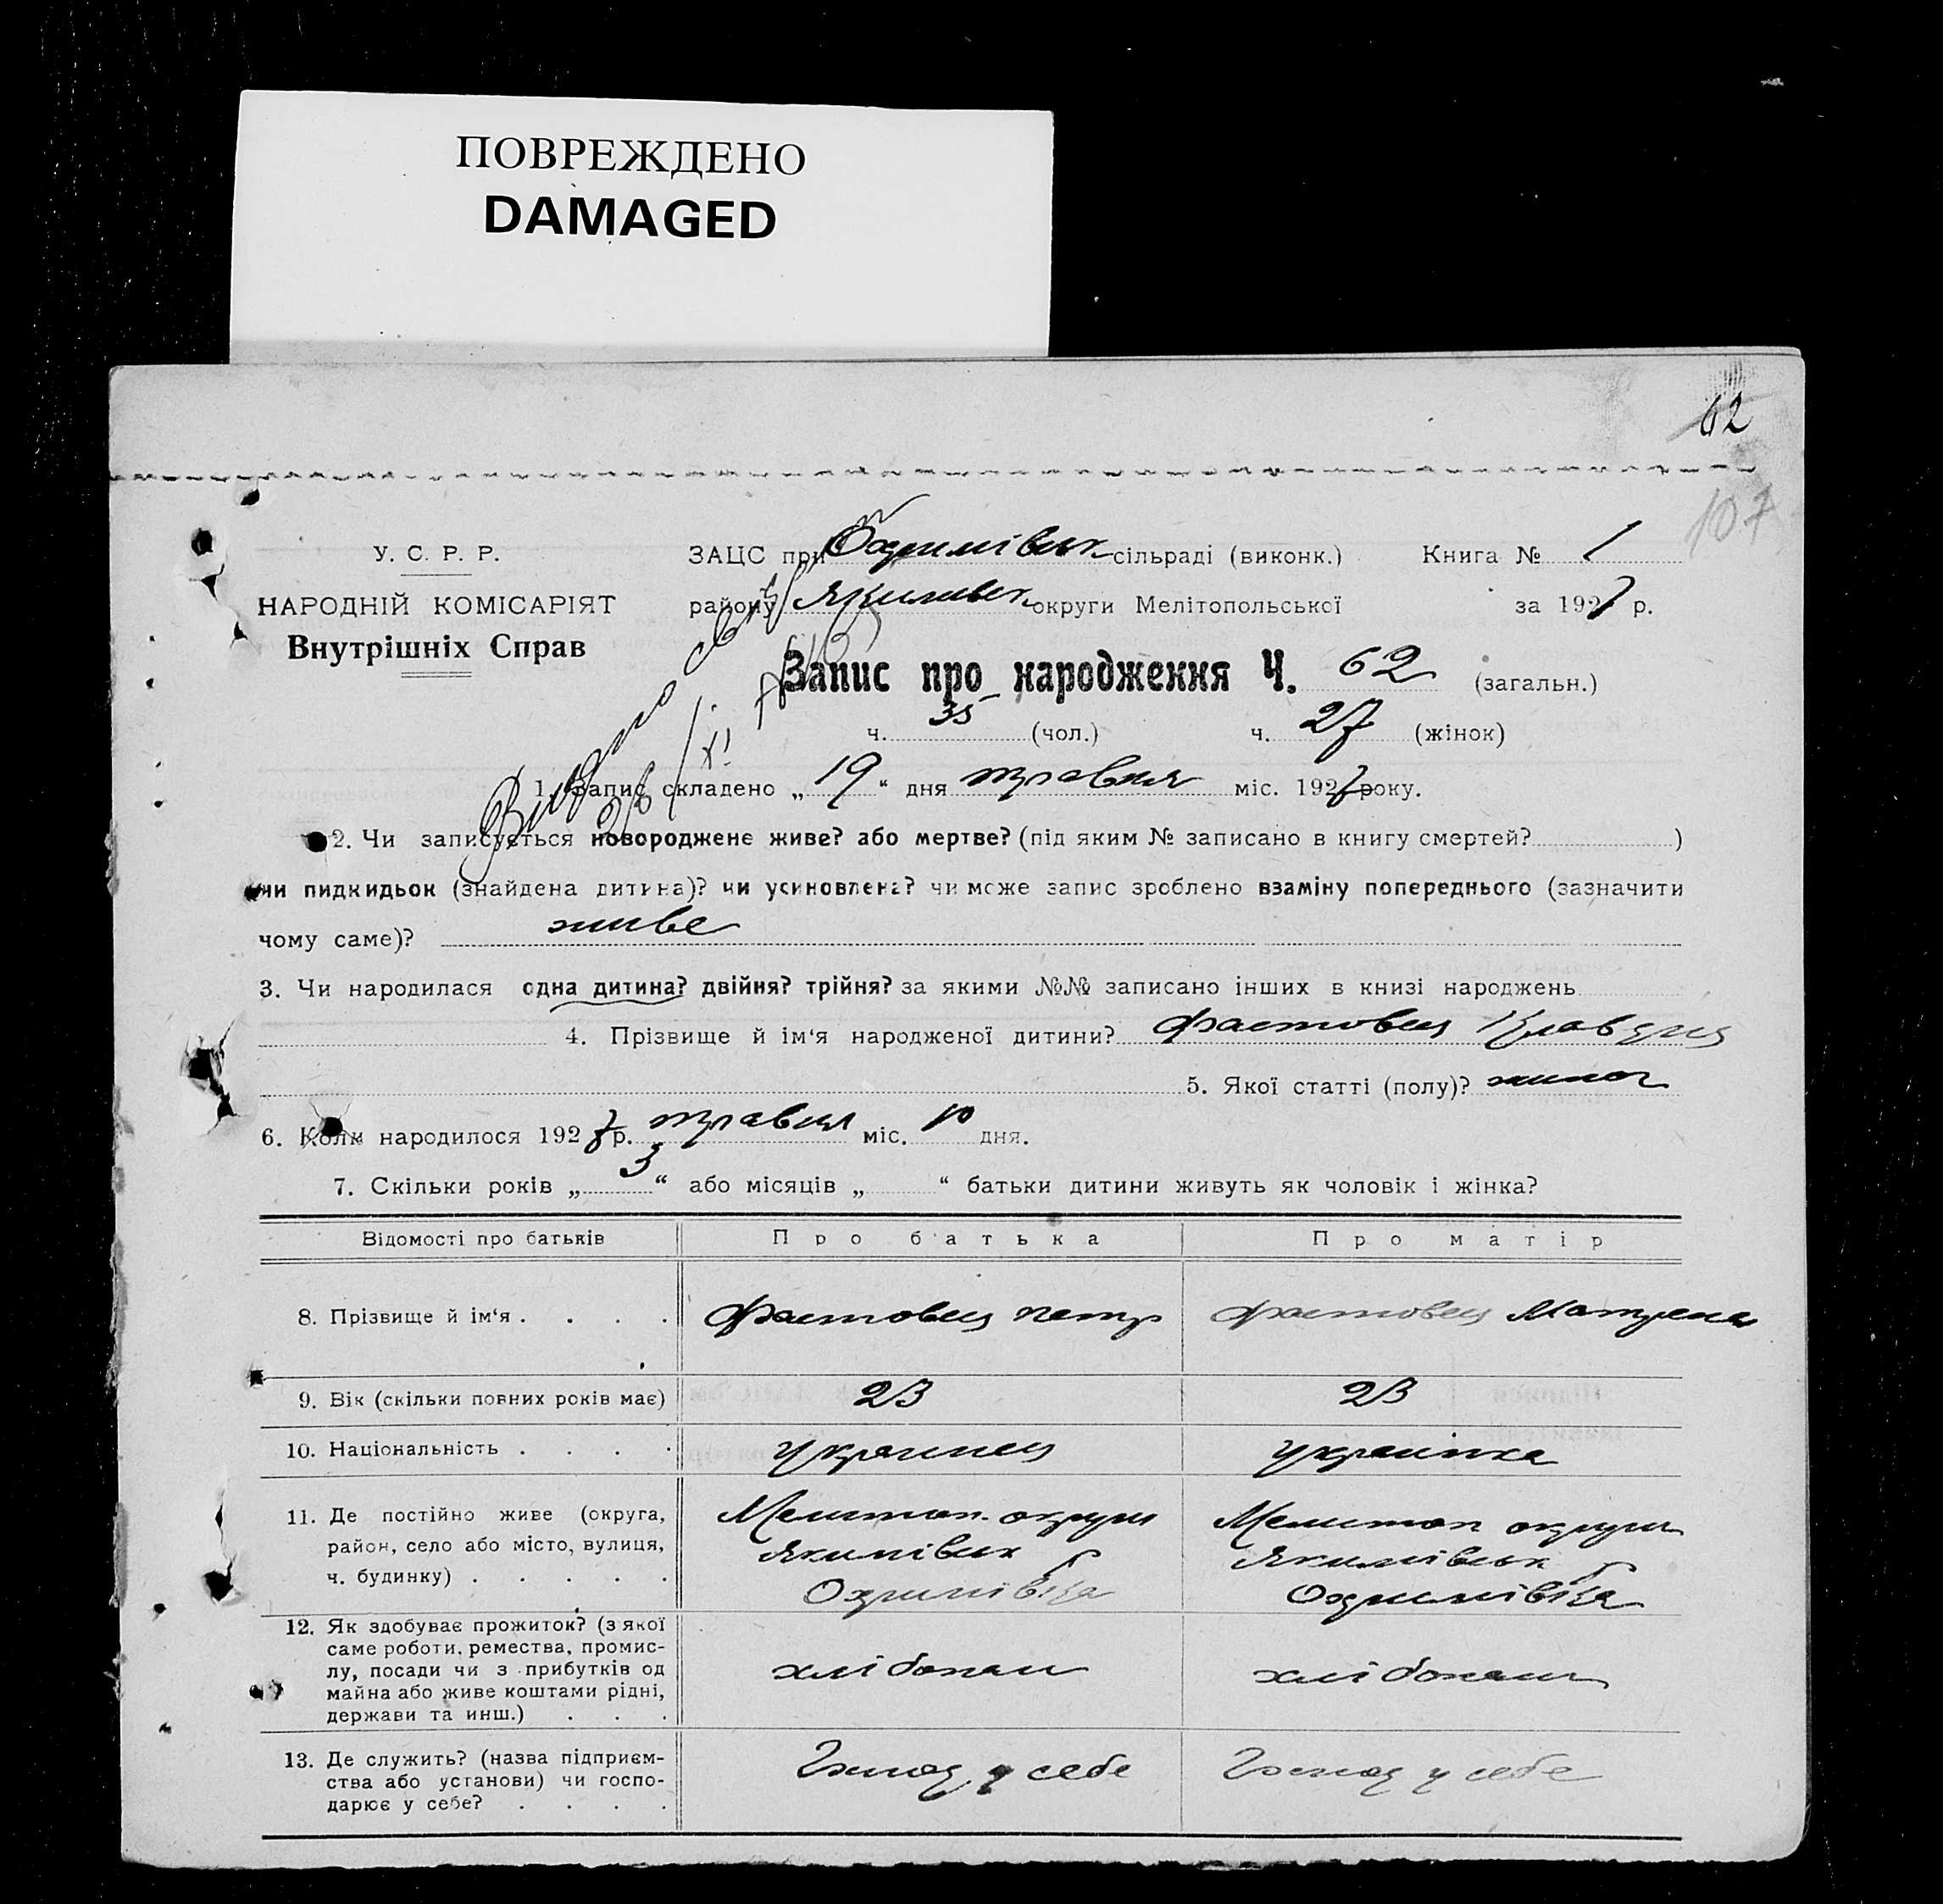 ПОВРЕЖДЕНО
DAMAGED
62
107
У. С. Р. Р.
НАРОДНІЙ КОМІСАРІЯТ
Внутрішніх Справ
ЗАЦС при Охримівськ сільраді (виконк.) Книга № 1
району Якимівськ округи Мелітопольської за 1927 р.
Запис про народження Ч. 62 (загальн.)
ч. 35 (чол.) ч. 27 (жінок)
1. Запис складено „ 19 “ дня травня міс. 1927 року.
2. Чи записується новороджене живе? або мертве? (під яким № записано в книгу смертей? )
чи пидкидьок (знайдена дитина)? чи усиновлена? чи може запис зроблено взаміну попереднього (зазначити
чому саме)? живе
3. Чи народилася одна дитина? двійня? трійня? за якими №№ записано інших в книзі народжень
4. Прізвище й ім‘я народженої дитини? Фастовец Клавдия
5. Якої статті (полу)? жиноч
6. Коли народилося 1927 р. травня міс. 10 дня.
7. Скільки років „ 3 “ або місяців „ “ батьки дитини живуть як чоловік і жінка?
Відомості про батьків Про батька Про матір
8. Прізвище й ім‘я . . . . Фастовец Петр Фастовец Матрена
9. Вік (скільки повних років має) 23 23
10. Національність . . . . Украинец Українка
11. Де постійно живе (округа, район, село або місто, вулиця, ч. будинку) . . . . .
Мелитоп. округи Якимівськ Охримівка
Мелитоп округи Якимівськ Охримівка
12. Як здобуває прожиток? (з якої
саме роботи, ремества, промис-
лу, посади чи з прибутків од
майна або живе коштами рідні,
держави та инш.) . . .
хлібором хлібором
13. Де служить? (назва підприєм-
ства або установи) чи госпо-
дарює у себе? . . . .
у себе у себе